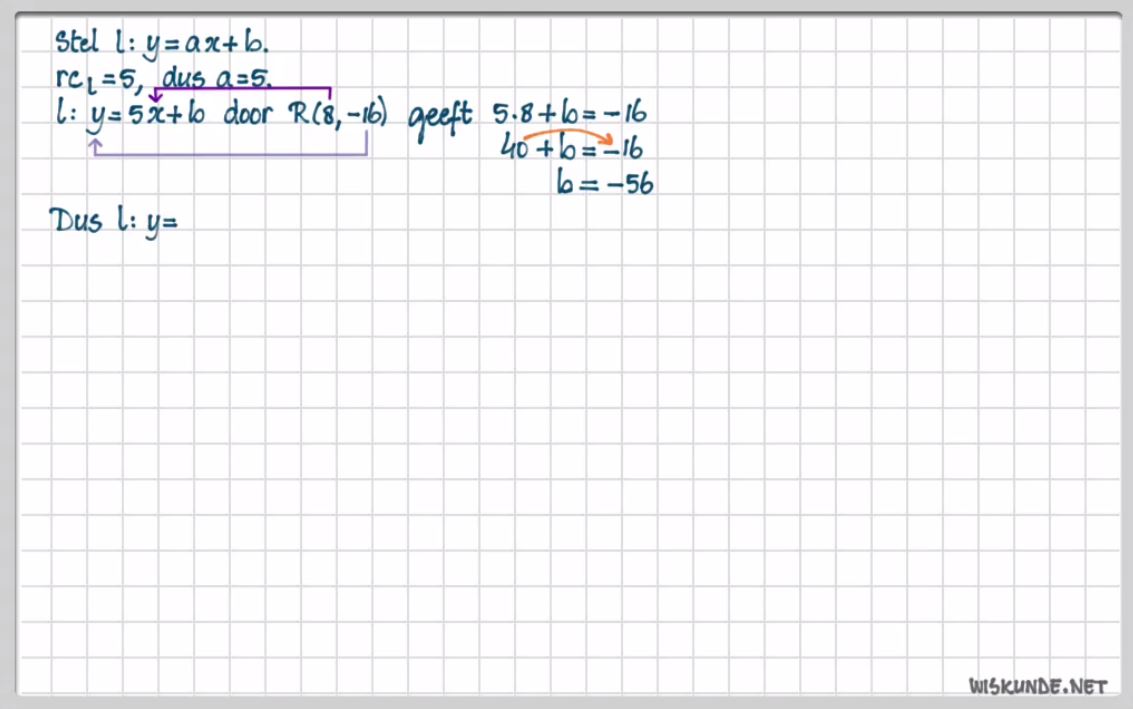 Stel l: y = ax + b.
rc_l = 5, dus a = 5.
l: y = 5x + b door R(8, -16) geeft 5·8 + b = -16
40 + b = -16
b = -56
Dus l: y =
WISKUNDE.NET